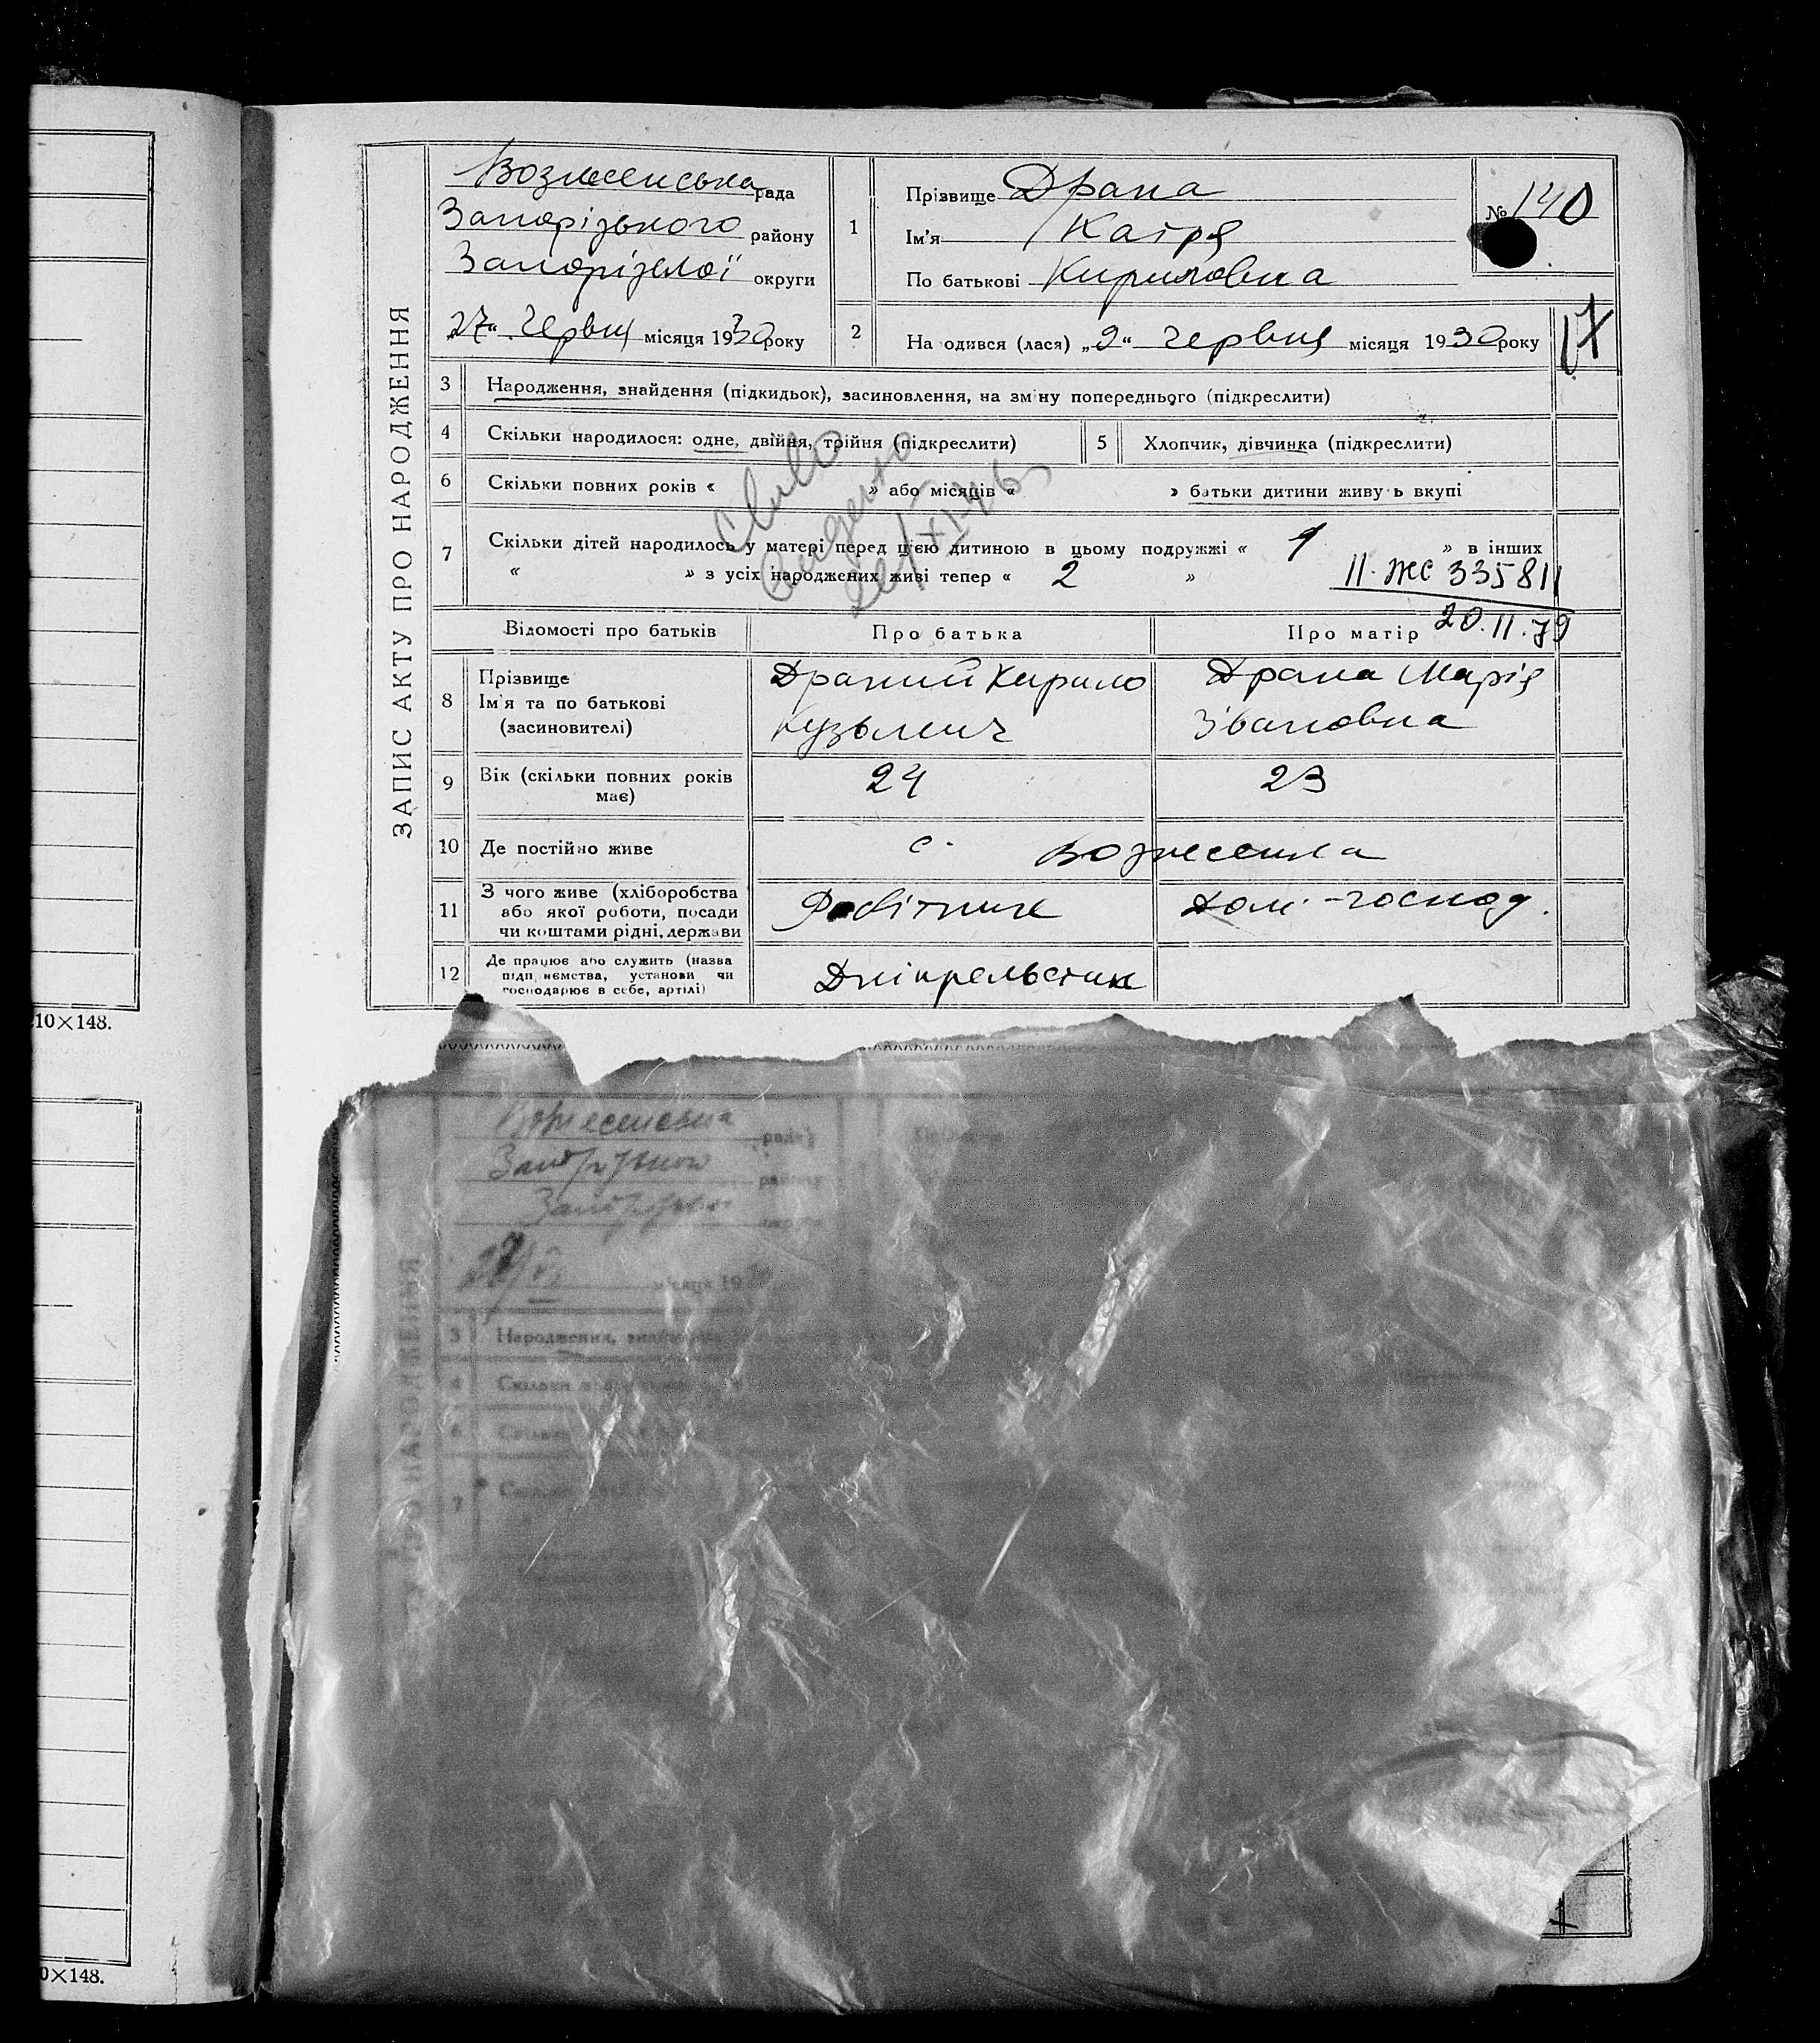 ЗАПИС АКТУ ПРО НАРОДЖЕННЯ
Вознесенська рада
Запорізького району
Запорізької округи
„27“ Червня місяця 1930 року
1
Прізвище Драна
Ім'я Катря
По батькові Кириловна
№ 140
2
На одився (лася) „9“ червня місяця 1930 року
17
3 Народження, знайдення (підкидьок), засиновлення, на зміну попереднього (підкреслити)
4 Скільки народилося: одне, двійня, трійня (підкреслити)
5 Хлопчик, дівчинка (підкреслити)
6 Скільки повних років « » або місяців « » батьки дитини живуть вкупі
7 Скільки дітей народилось у матері перед цією дитиною в цьому подружжі « 1 » в інших
« » з усіх народжених живі тепер « 2 »
II-ЖС 335811
20.11.79
Відомості про батьків
Про батька
Про матір
8 Прізвище
Ім'я та по батькові
(засновителі)
Драний Кирило
Кузьмич
Драна Марія
Івановна
9 Вік (скільки повних років
має)
24
23
10 Де постійно живе
с. Вознесенка
11 З чого живе (хліборобства
або якої роботи, посади
чи коштами рідні, держави
Робітник
Дом.-господ.
12 Де працює або служить (назва
підприємства, установи чи
господарює в себе, артілі)
Дніпрельстан
10×148.
Вознесенська рада
району
місяця 19
3 Народження,
4
6
7
0×148.